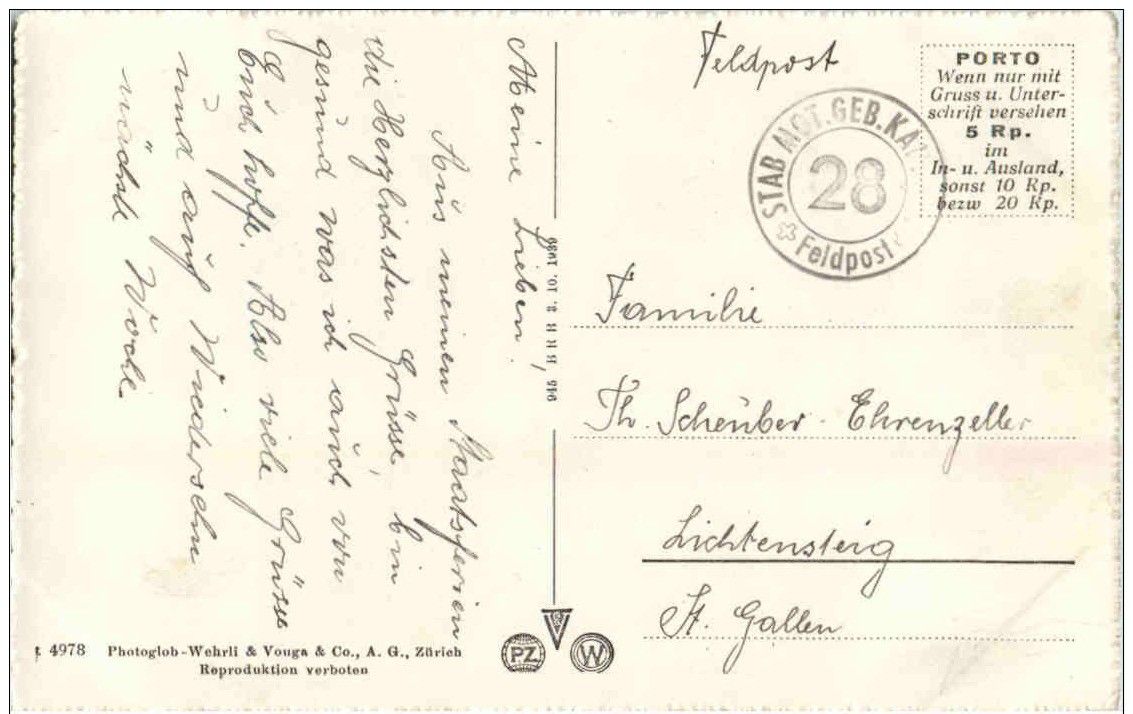 Meine Lieben!
Aus meinen Staatsferien
die Herzlichsten Grüsse, bin
gesund was ich auch von
Euch hoffe. Also viele Grüsse
und auf Wiedersehn
nächste Woche.
Feldpost
PORTO
Wenn nur mit
Gruss u. Unter-
schrift versehen
5 Rp.
im
In- u. Ausland,
sonst 10 Rp.
bezw 20 Rp.
STAB MOT. GEB. KA
28
Feldpost
Familie
Th. Scheüber - Ehrenzeller
Lichtensteig
St. Gallen
2. 10. 1936
4978 Photoglob-Wehrli & Vouga & Co., A. G., Zürich
Reproduktion verboten
PZ
W